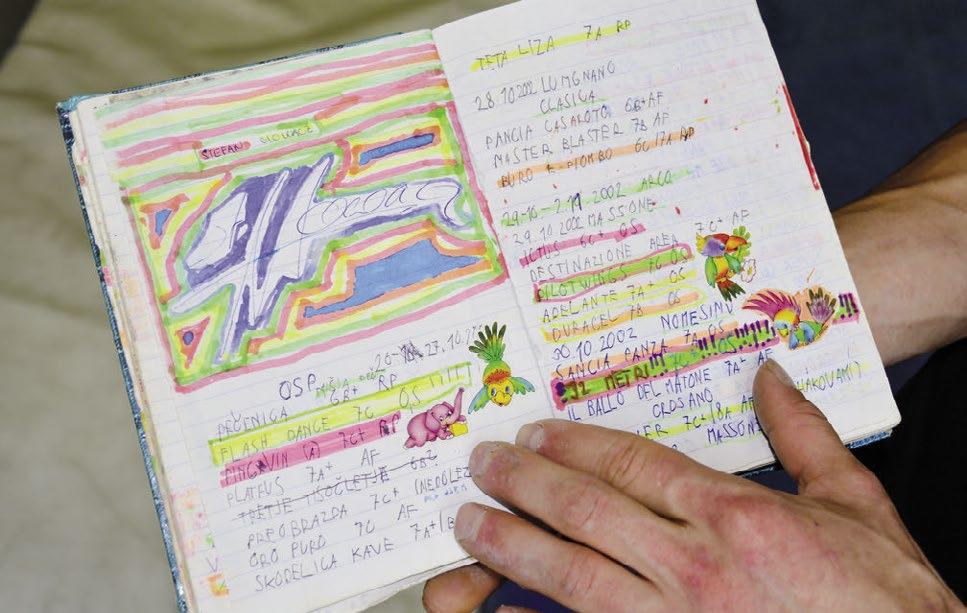 STEFAN GLOWACZ
OSP
26- 27.10.2
PEČENICA 6B+ RP
FLASH DANCE 7C OS !!!!
PINGVIN 7C+ RP
PLATFUS 7A+ AF
TRETJE TISOČLETJE 6B2
PREOBRAZDA 7C+
ORO PURO 7C AF
SKODELICA KAVE 7A+
TETA LIZA 7A RP
28.10.2002 LUMGNANO
CLASICA
PANCIA CASAROTO 6B+AF
MASTER BLASTER 7B AF
BURO E PIOMBO 6C/7A RP
29.10-2.11.2002 ARCO
29.10.2002 MASSONE
ICTUS 6C+ OS
DESTINAZIONE AREA 7C+ AF
PILOTWINGS 7C OS
ADELANTE 7A+ OS
DURACEL 7B OS
30.10.2002 NOMESINO
SANCIA PANZA 7A OS
12 METRI!!! 7C+ OS !!!
IL BALLO DEL MATONE 7A+ AF
CROSANO
7C+/8A AF
MASSONE